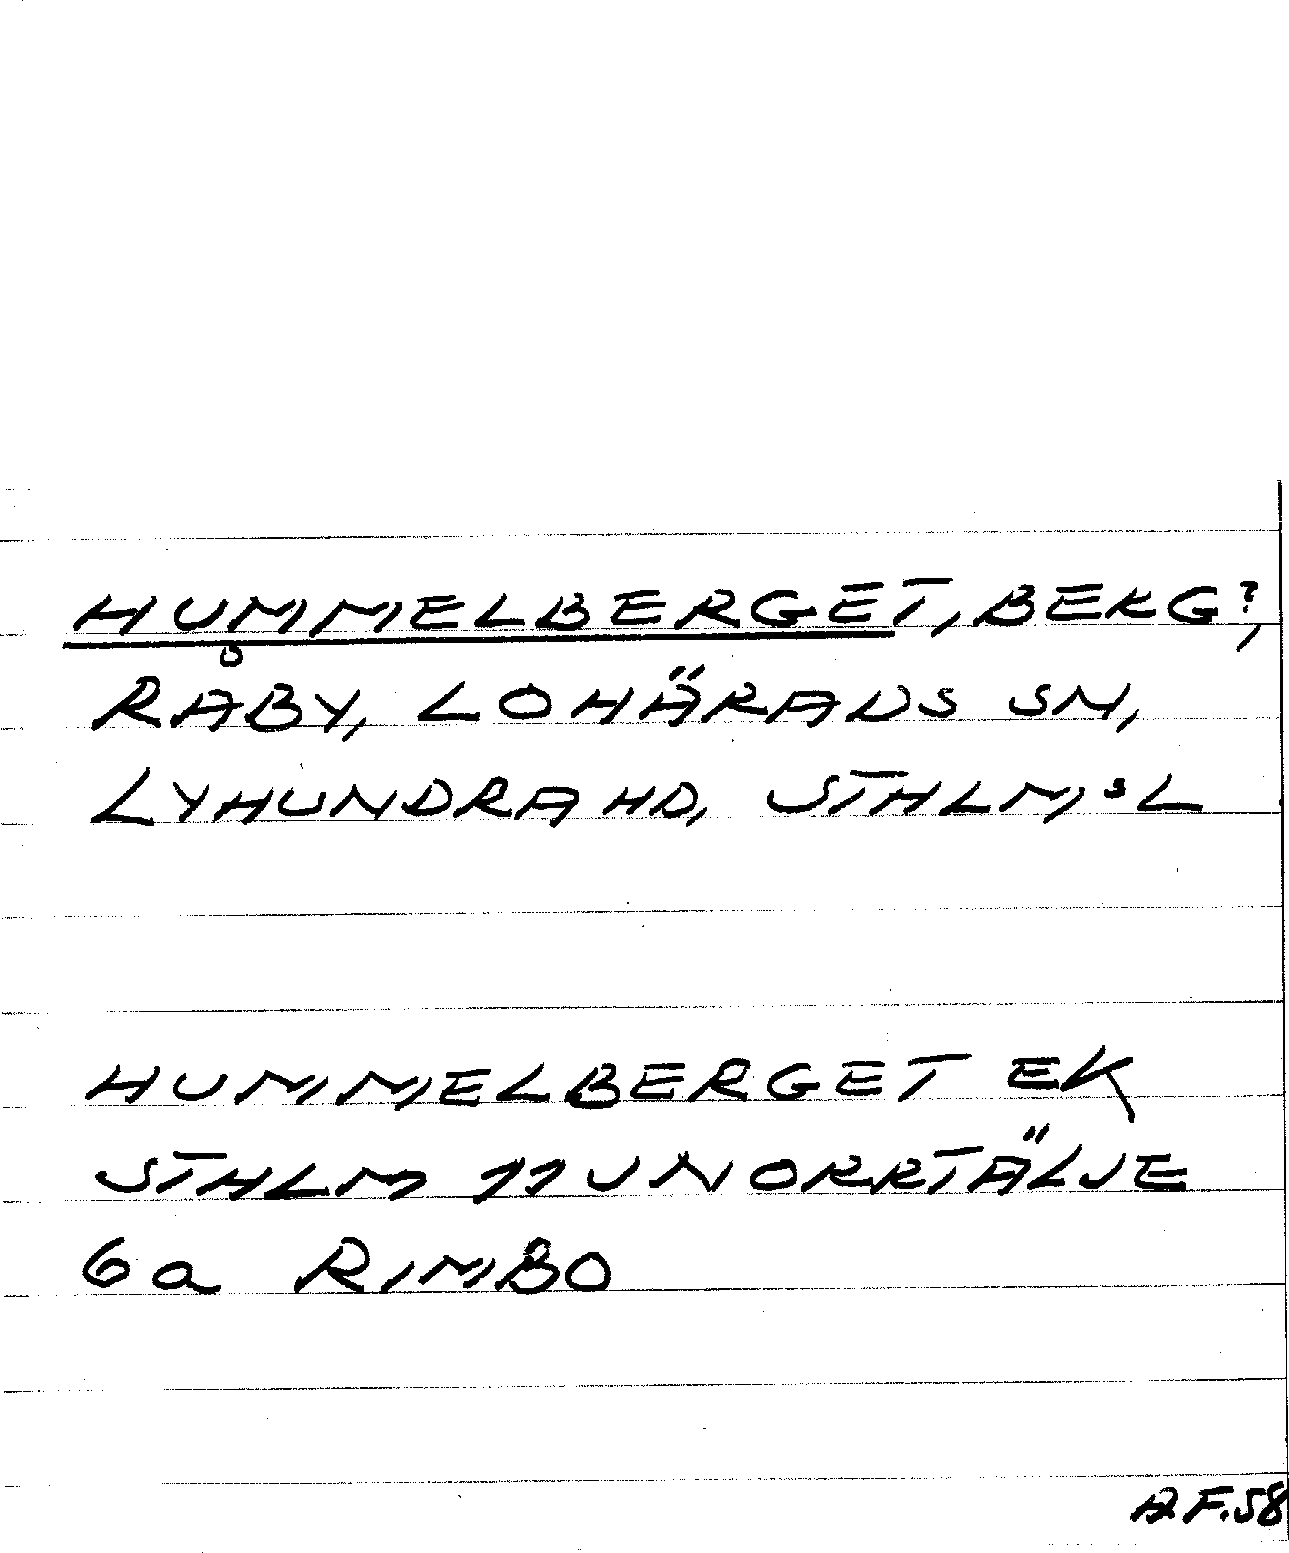 HUMMELBERGET, BERG?,
RÅBY, LOHÄRADS SN,
LYHUNDRA HD, STHLM:S L
HUMMELBERGET EK
STHLM 11 U NORRTÄLJE
6a RIMBO
A F. 58